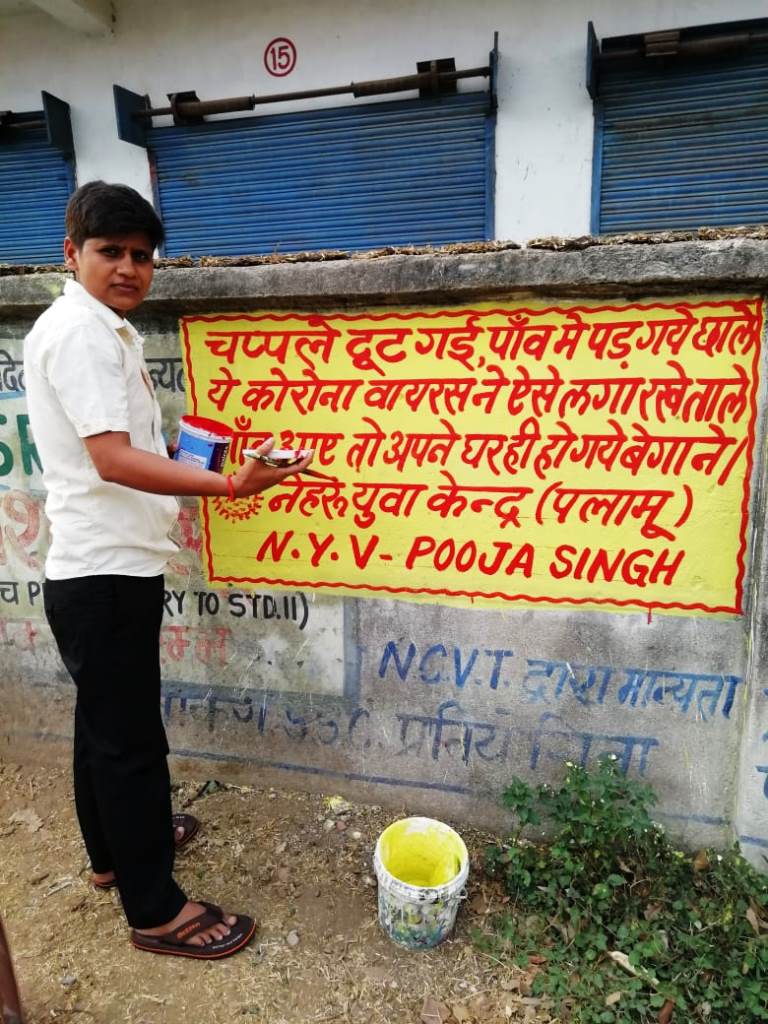 15
चप्पले टूट गई, पाँव मे पड़ गये छाले
ये कोरोना वायरस ने ऐसे लगा रखे ताले
गाँव आए तो अपने घर ही हो गये बेगाने।
नेहरू युवा केन्द्र (पलामू)
N.Y.V- POOJA SINGH
RY TO STD.II)
N.C.V.T. द्वारा मान्यता